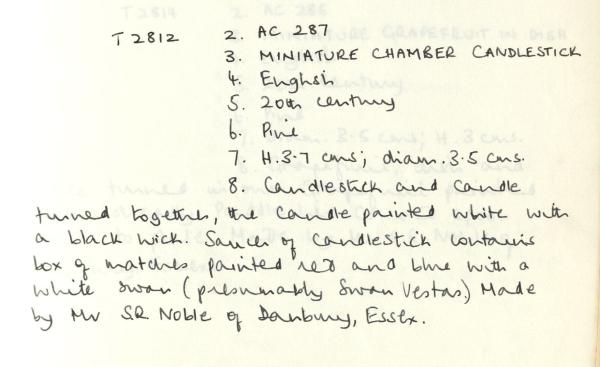 T2812 2. AC 287
3. MINIATURE CHAMBER CANDLESTICK
4. English
5. 20th century
6. Pine
7. H.3.7 cms; diam. 3.5 cms.
8. Candlestick and candle
turned together, the candle painted white with
a black wick. Saucer of candlestick contains
box of matches painted red and blue with a
white swan (presumably Swan Vestas.) Made
by Mr S.R. Noble of Danbury, Essex.